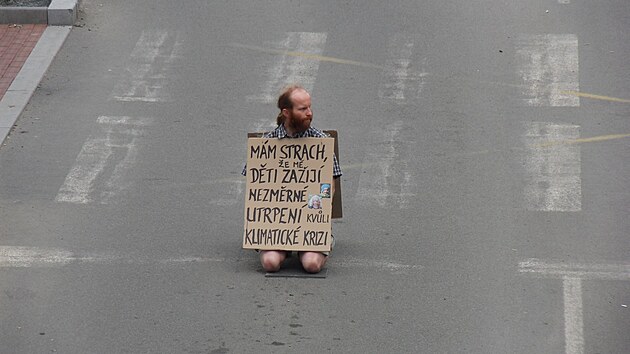 MÁM STRACH,
ŽE MÉ
DĚTI ZAŽIJÍ
NEZMĚRNÉ
UTRPENÍ KVŮLI
KLIMATICKÉ KRIZI